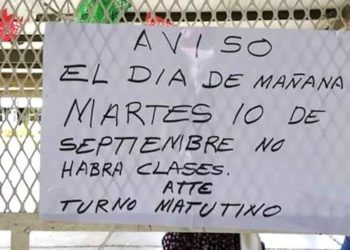 AVISO
EL DIA DE MAÑANA
MARTES 10 DE
SEPTIEMBRE NO
HABRA CLASES.
ATTE
TURNO MATUTINO